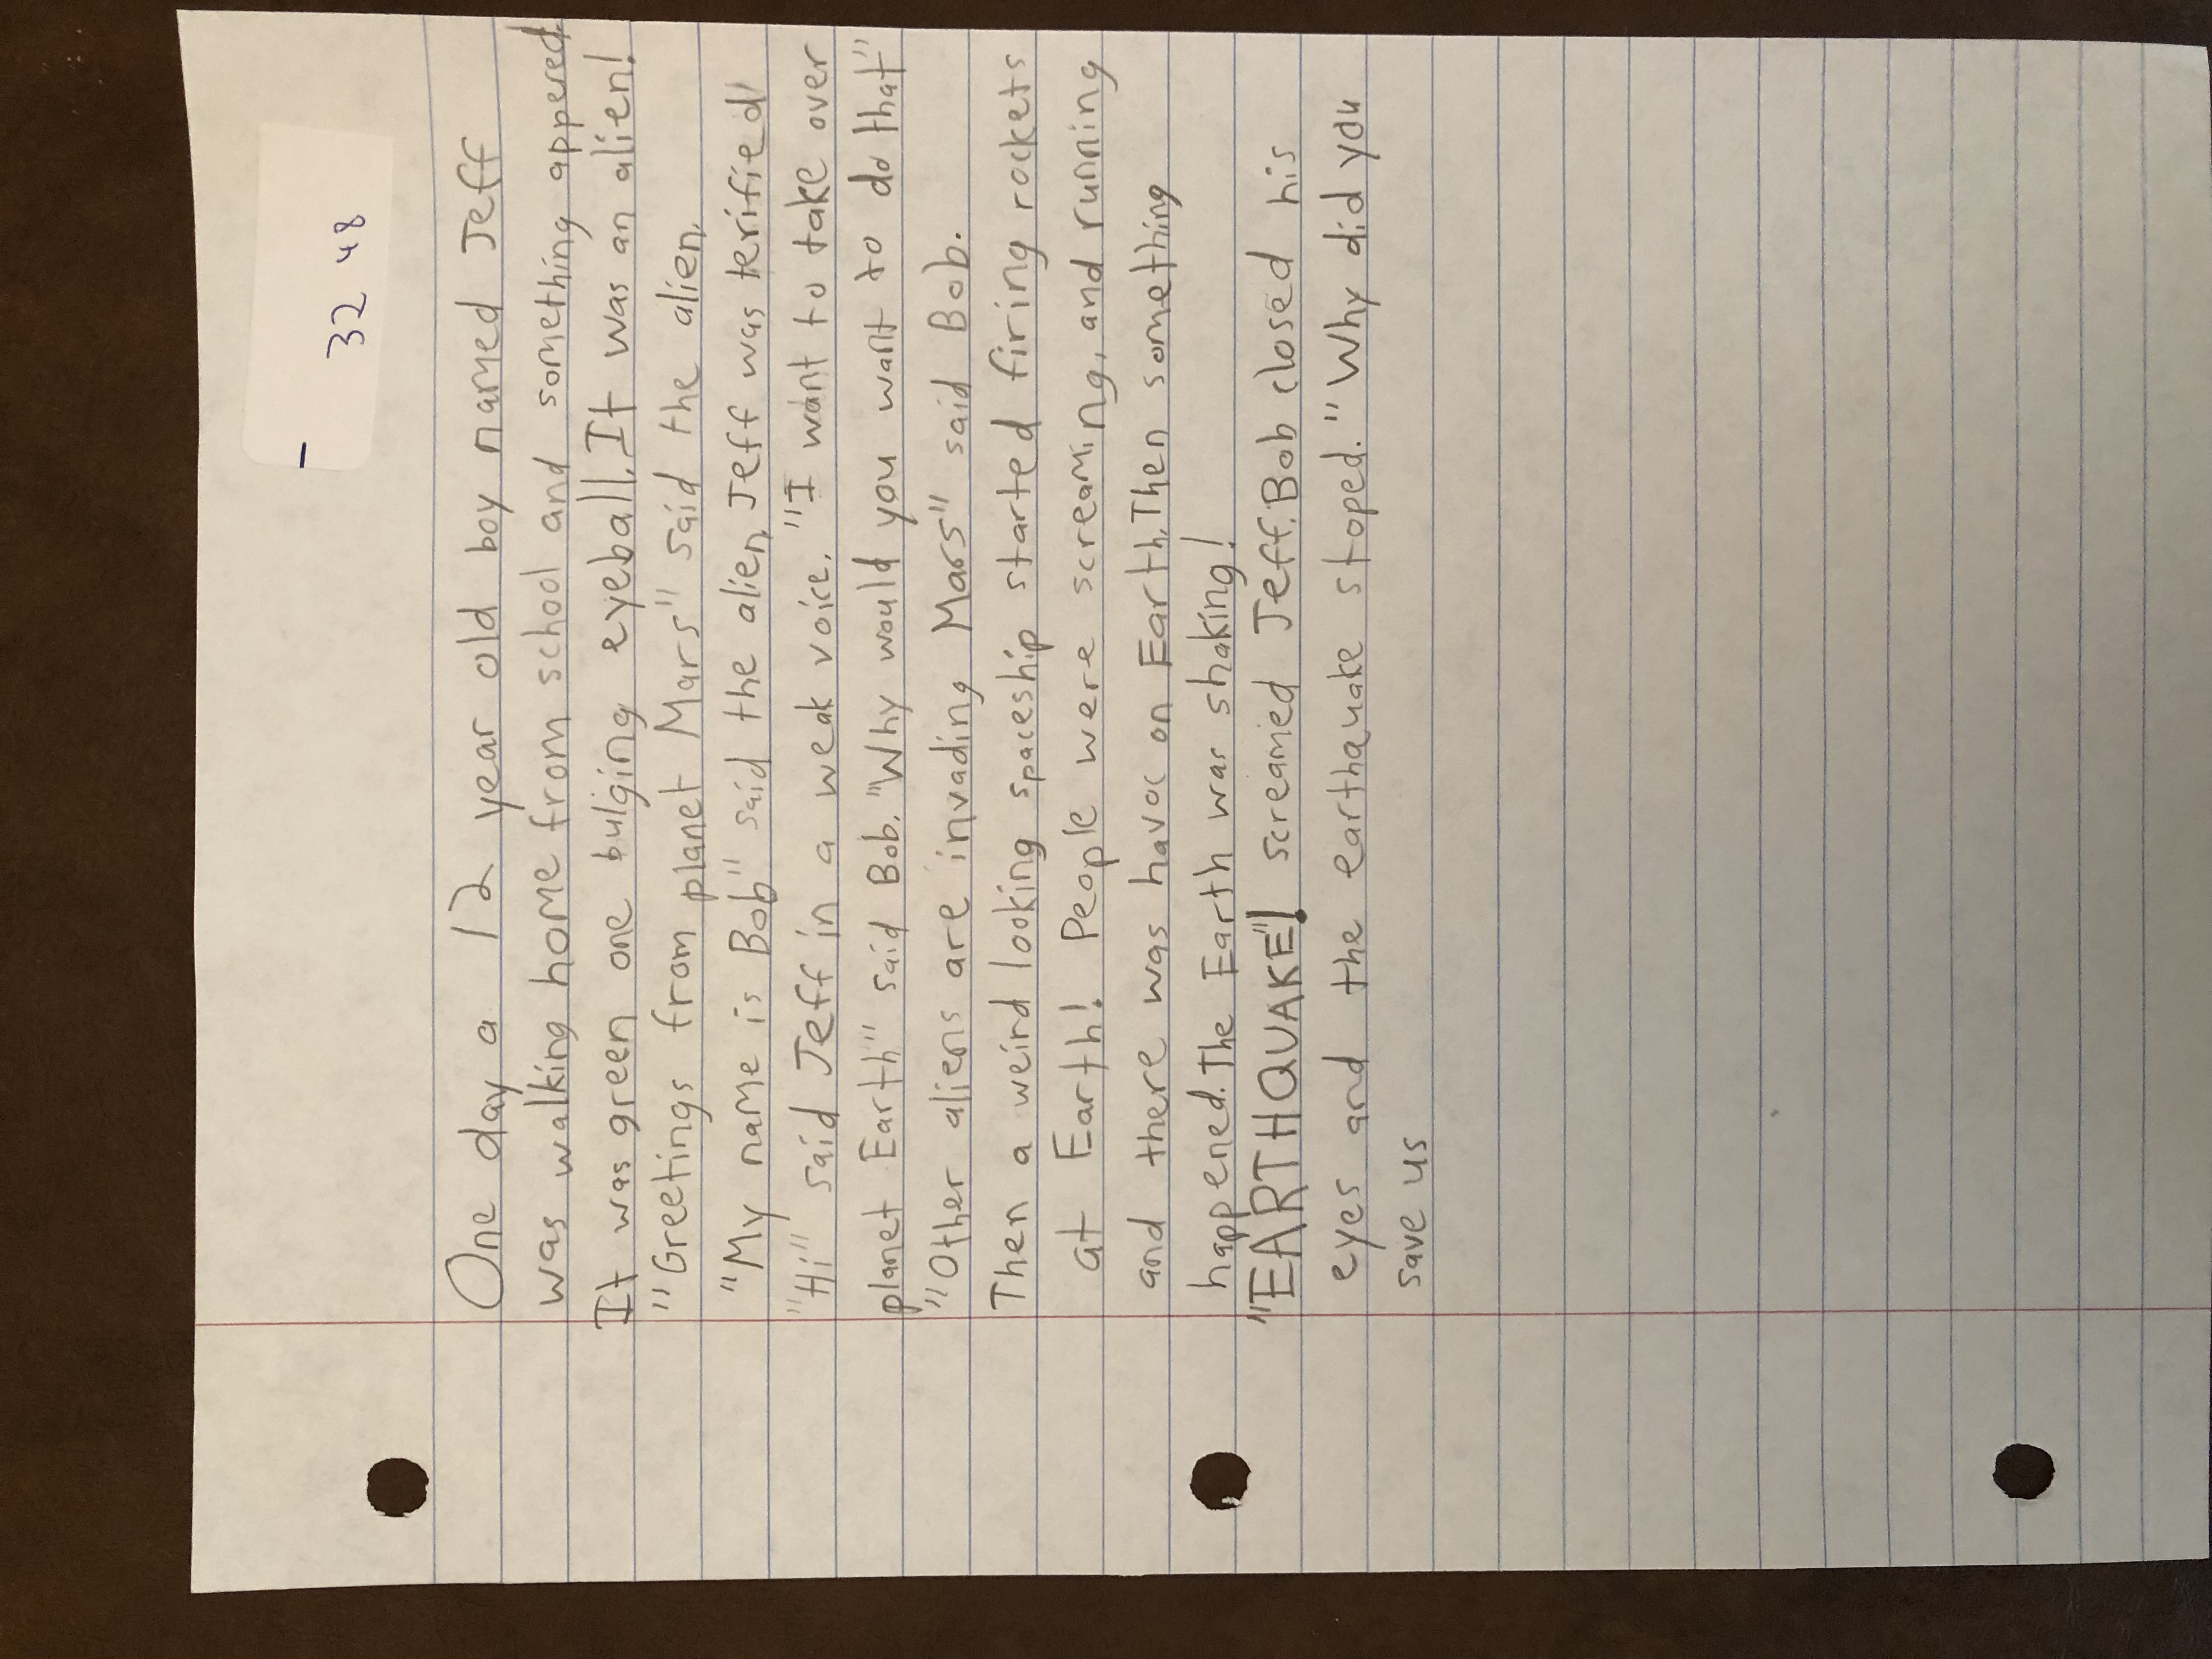 32 48
One day a 12 year old boy named Jeff
was walking home from school and something appered.
It was green one bulging eyeball. It was an alien!
"Greetings from planet Mars" said the alien.
"My name is Bob" said the alien, Jeff was terified
"Hi" said Jeff in a weak voice. "I want to take over
planet Earth" said Bob. "Why would you want to do that"
"Other aliens are invading Mars" said Bob.
Then a weird looking spaceship started firing rockets
at Earth! People were screaming, and running
and there was havoc on Earth. Then something
happened. The Earth was shaking!
"EARTHQUAKE"! screamed Jeff. Bob closed his
eyes and the earthquake stoped. "Why did you
save us